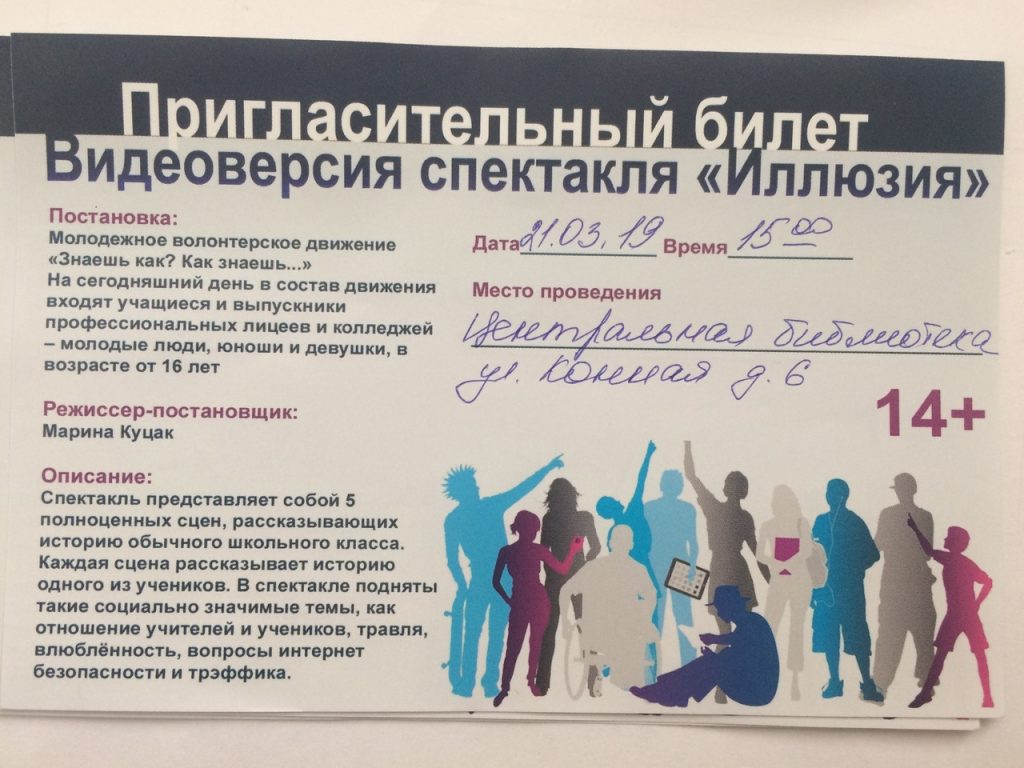 Пригласительный билет
Видеоверсия спектакля «Иллюзия»
Постановка:
Молодежное волонтерское движение
«Знаешь как? Как знаешь...»
На сегодняшний день в состав движения
входят учащиеся и выпускники
профессиональных лицеев и колледжей
– молодые люди, юноши и девушки, в
возрасте от 16 лет
Режиссер-постановщик:
Марина Куцак
Описание:
Спектакль представляет собой 5
полноценных сцен, рассказывающих
историю обычного школьного класса.
Каждая сцена рассказывает историю
одного из учеников. В спектакле подняты
такие социально значимые темы, как
отношение учителей и учеников, травля,
влюблённость, вопросы интернет
безопасности и трэффика.
Дата 21.03.19 Время 15 00
Место проведения
Центральная библиотека
ул. Конная д. 6
14+